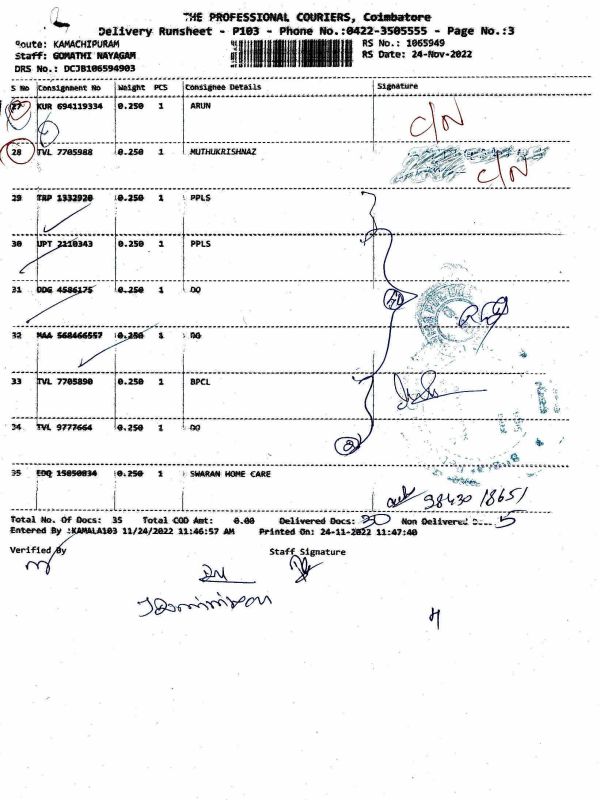 THE PROFESSIONAL COURIERS, Coimbatore
Delivery Runsheet - P103 - Phone No.:0422-3505555 - Page No.:3
Route: KAMACHIPURAM
RS No.: 1065949
Staff: GOMATHI NAYAGAM
RS Date: 24-Nov-2022
DRS No.: DCJB106594903
S No Consignment No Weight PCS Consignee Details Signature
27 KUR 694119334 0.250 1 ARUN C/N
28 TVL 7705988 0.250 1 MUTHUKRISHNAZ C/N
29 TRP 1332920 0.250 1 PPLS
30 UPT 2110343 0.250 1 PPLS
31 DDG 4586175 0.250 1 DO
32 MAA 568466557 0.250 1 DO
33 TVL 7705890 0.250 1 BPCL
34 TVL 9777664 0.250 1 DO
35 EDQ 15050834 0.250 1 SWARAN HOME CARE
98430 18651
Total No. Of Docs: 35 Total COD Amt: 0.00 Delivered Docs: 30 Non Delivered D... 5
Entered By :KAMALA103 11/24/2022 11:46:57 AM Printed On: 24-11-2022 11:47:40
Verified By Staff Signature